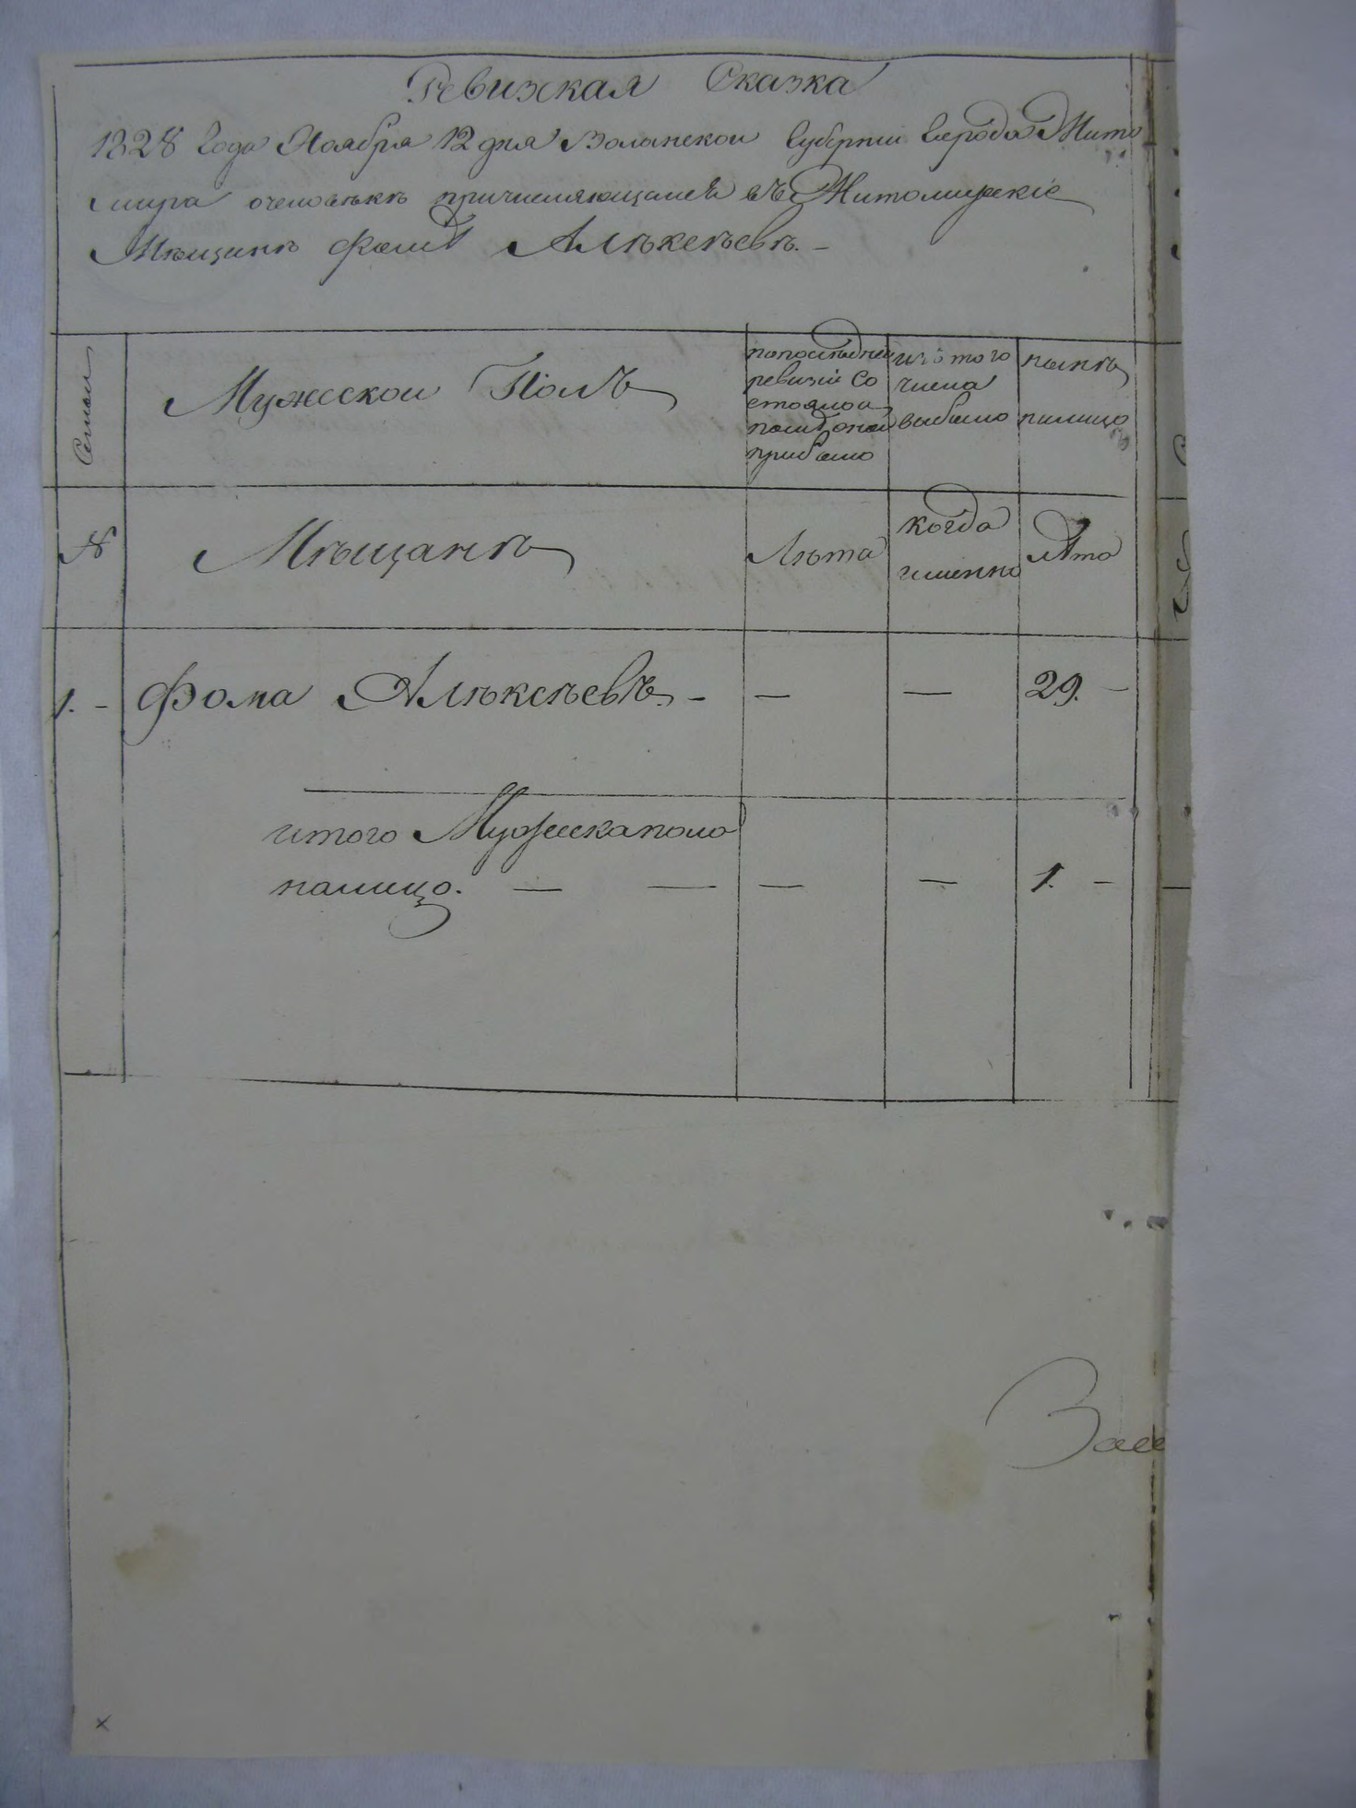 Ревижкая Сказка
1828 года Ноября 12 дня Волынской Губернии города Жито
мира очеловѣкѣ причисляющамся въ Житомирскіе
Мѣщанѣ Фомѣ Алѣксѣевѣ. —
Семьи
Мужескои Полъ
попоследнеи
ревизіи Со
стояло и
послѣ оной
прибыло
изъ того
числа
выбыло
нынѣ
налицо
№
Мѣщанѣ
Лѣта
когда
именно
Лѣта
1. —
Фома Алѣксѣевъ. —
—
—
29. —
итого Мужескаполо
налицо. — —
—
—
1. —
х